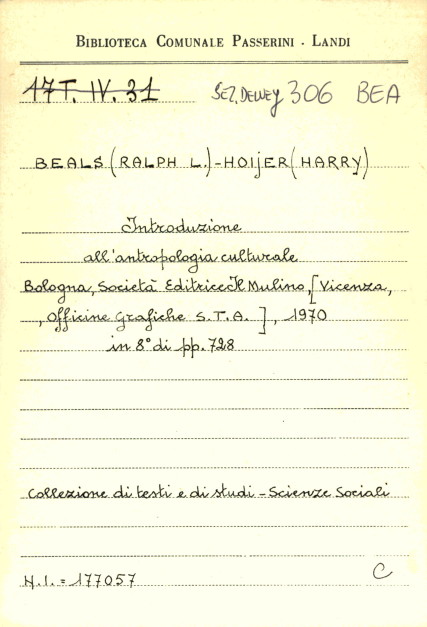 BIBLIOTECA COMUNALE PASSERINI - LANDI
17T. IV. 31 SEZ. DEWEY 306 BEA
BEALS (RALPH L.) - HOIJER (HARRY)
Introduzione
all'antropologia culturale
Bologna, Società Editrice Il Mulino, [Vicenza,
, Officine Grafiche S.T.A. ], 1970
in 8° di pp. 728
Collezione di testi e di studi - Scienze Sociali
N.I. = 177057 C